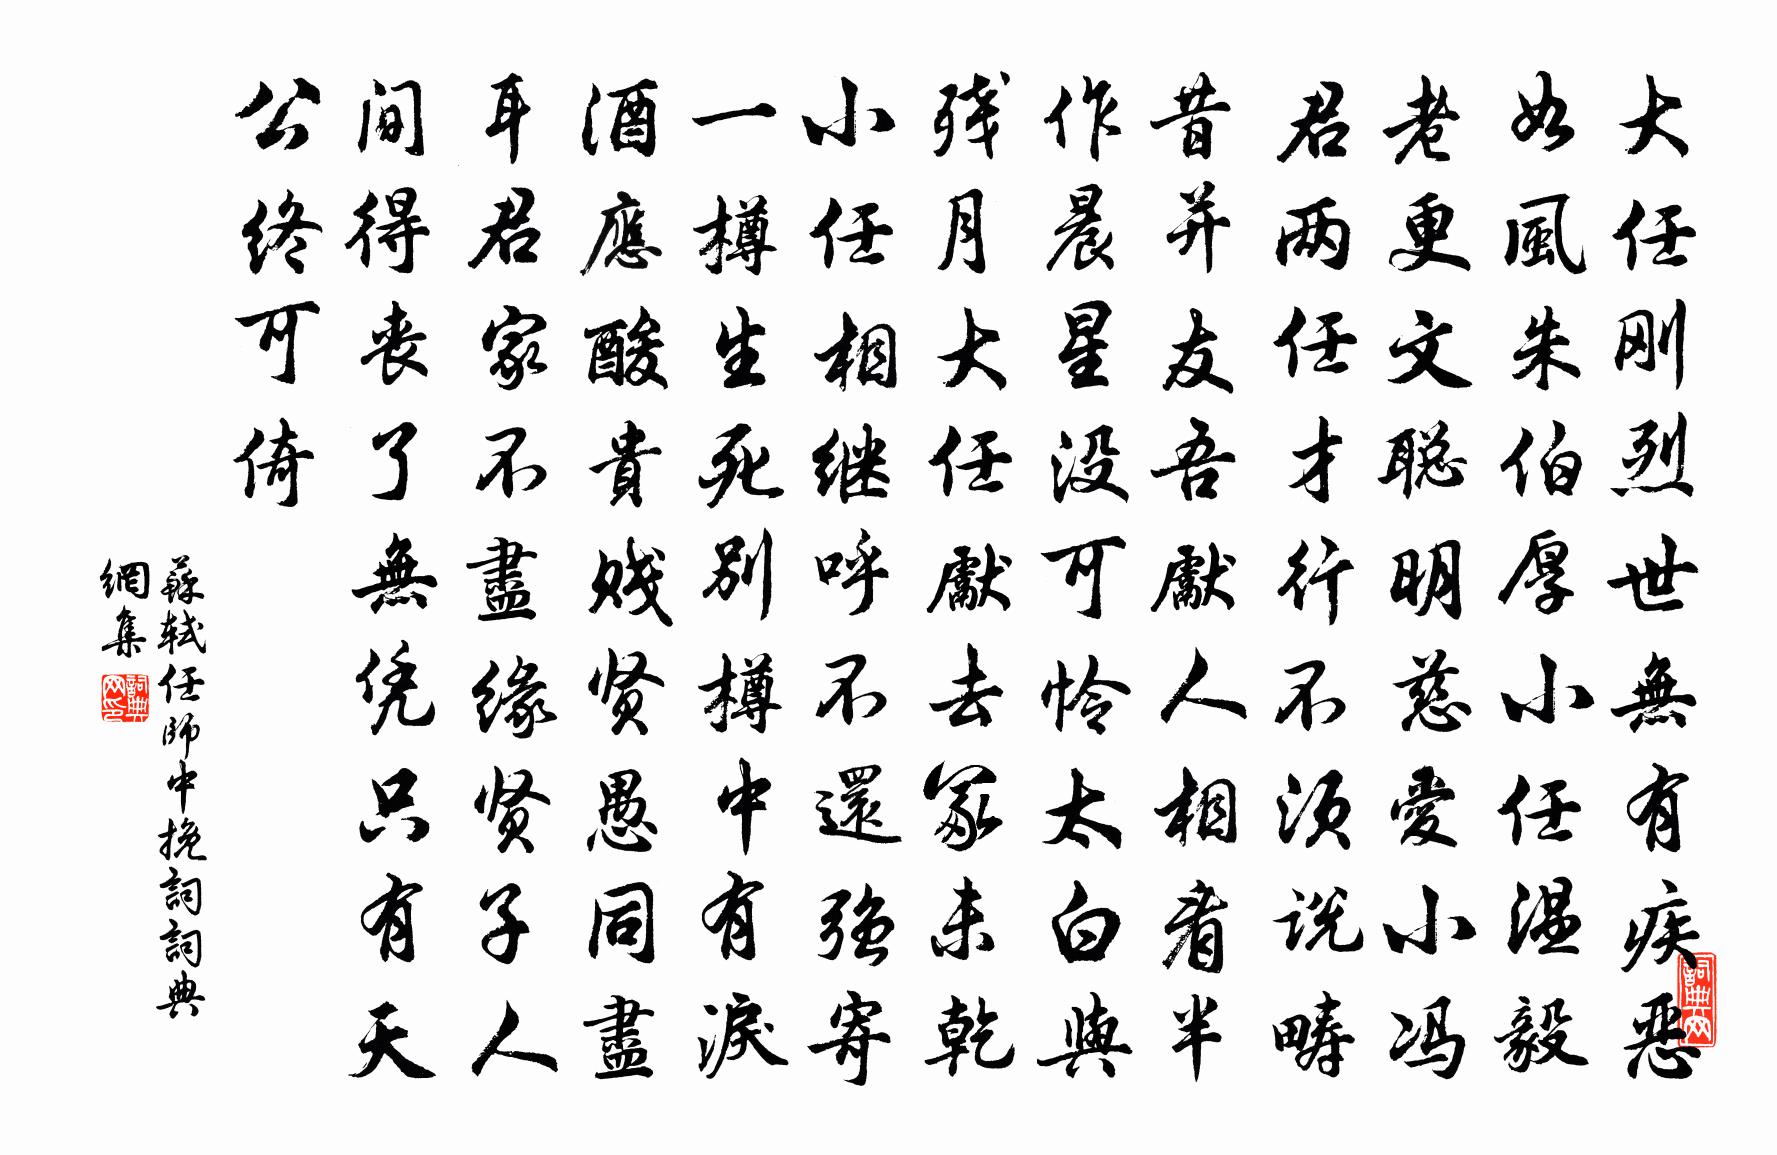 大任刚烈世無有疾惡
如風朱伯厚小任温毅
老更文聪明慈愛小冯
君两任才行不须说畴
昔并友吾獻人相看半
作晨星没可怜太白與
残月大任獻去冢未乾
小任相继呼不還强寄
一樽生死别樽中有淚
酒應酸貴贱贤愚同盡
耳君家不盡缘贤子人
间得丧了無凭只有天
公终可倚
蘇轼任師中挽詞詞典
網集
詞典网
詞典网印